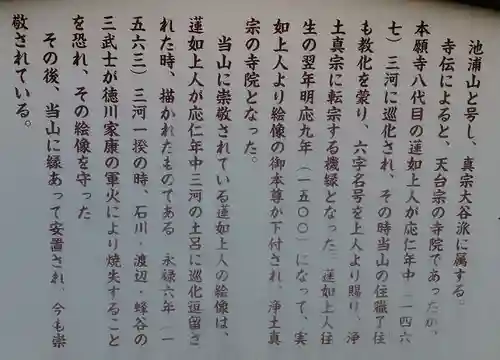 池浦山と号し、真宗大谷派に属する。
寺伝によると、天台宗の寺院であったが、
本願寺八代目の蓮如上人が応仁年中（一四六
七）三河に巡化され、その時当山の住職了住
も教化を蒙り、六字名号を上人より賜り、浄
土真宗に転宗する機縁となった。蓮如上人往
生の翌年明応九年（一五〇〇）になって、実
如上人より絵像の御本尊が下付され、浄土真
宗の寺院となった。
当山に崇敬されている蓮如上人の絵像は、
蓮如上人が応仁年中三河の土呂に巡化逗留さ
れた時、描かれたものである 永禄六年（一
五六三）三河一揆の時、石川・渡辺・蜂谷の
三武士が徳川家康の軍火により焼失すること
を恐れ、その絵像を守った
その後、当山に縁あって安置され、今も崇
敬されている。